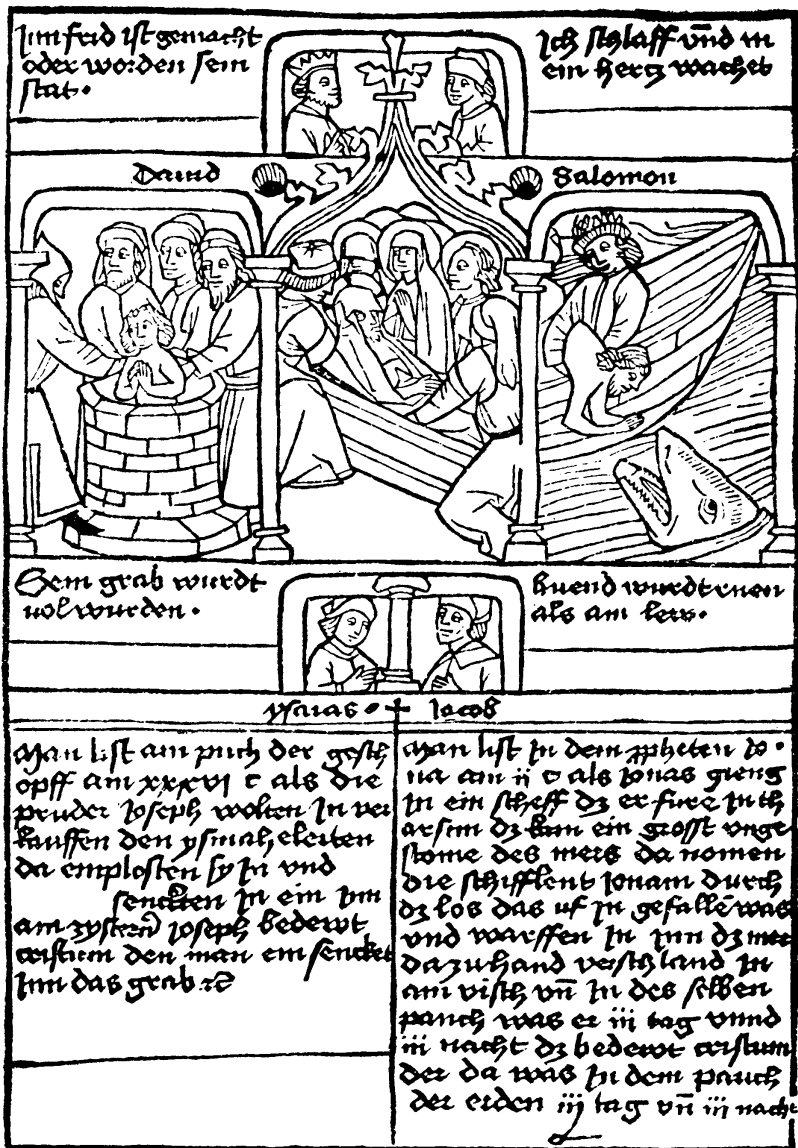 Inn frid ist gemacht
oder worden sein
stat.
Ich schlaff vñd m
ein hertz wachet
Dauid
Salomon
Sein grab wurdt
vol wurden.
wurdt ruen
als am lew.
ysaias. Iacob
Man list am puch der gesch
opff am xxxvi c als die
pruder Joseph wolten In ver
kauffen den ysmaheleiten
da emplosten sy In vnd
senckten In ein
am zystern Joseph bedewt
cristum den man ein sencket
Inn das grab
Man list In dem ppheten Jo.
na am ii c als Jonas gieng
In ein scheff dz er fure In th
arsim dz kam ein grosst vnge
stome des mers da nomen
die schifflent Jonam durch
dz los das uf In gefallẽ was
vnd warffen In Inn dz mer
da zu hand verschland In
am visch vñ In des selben
pauch was er iii tag vnnd
iii nacht dz bedewt cristum
der da was In dem pauch
der erden iij tag vñ iii nacht